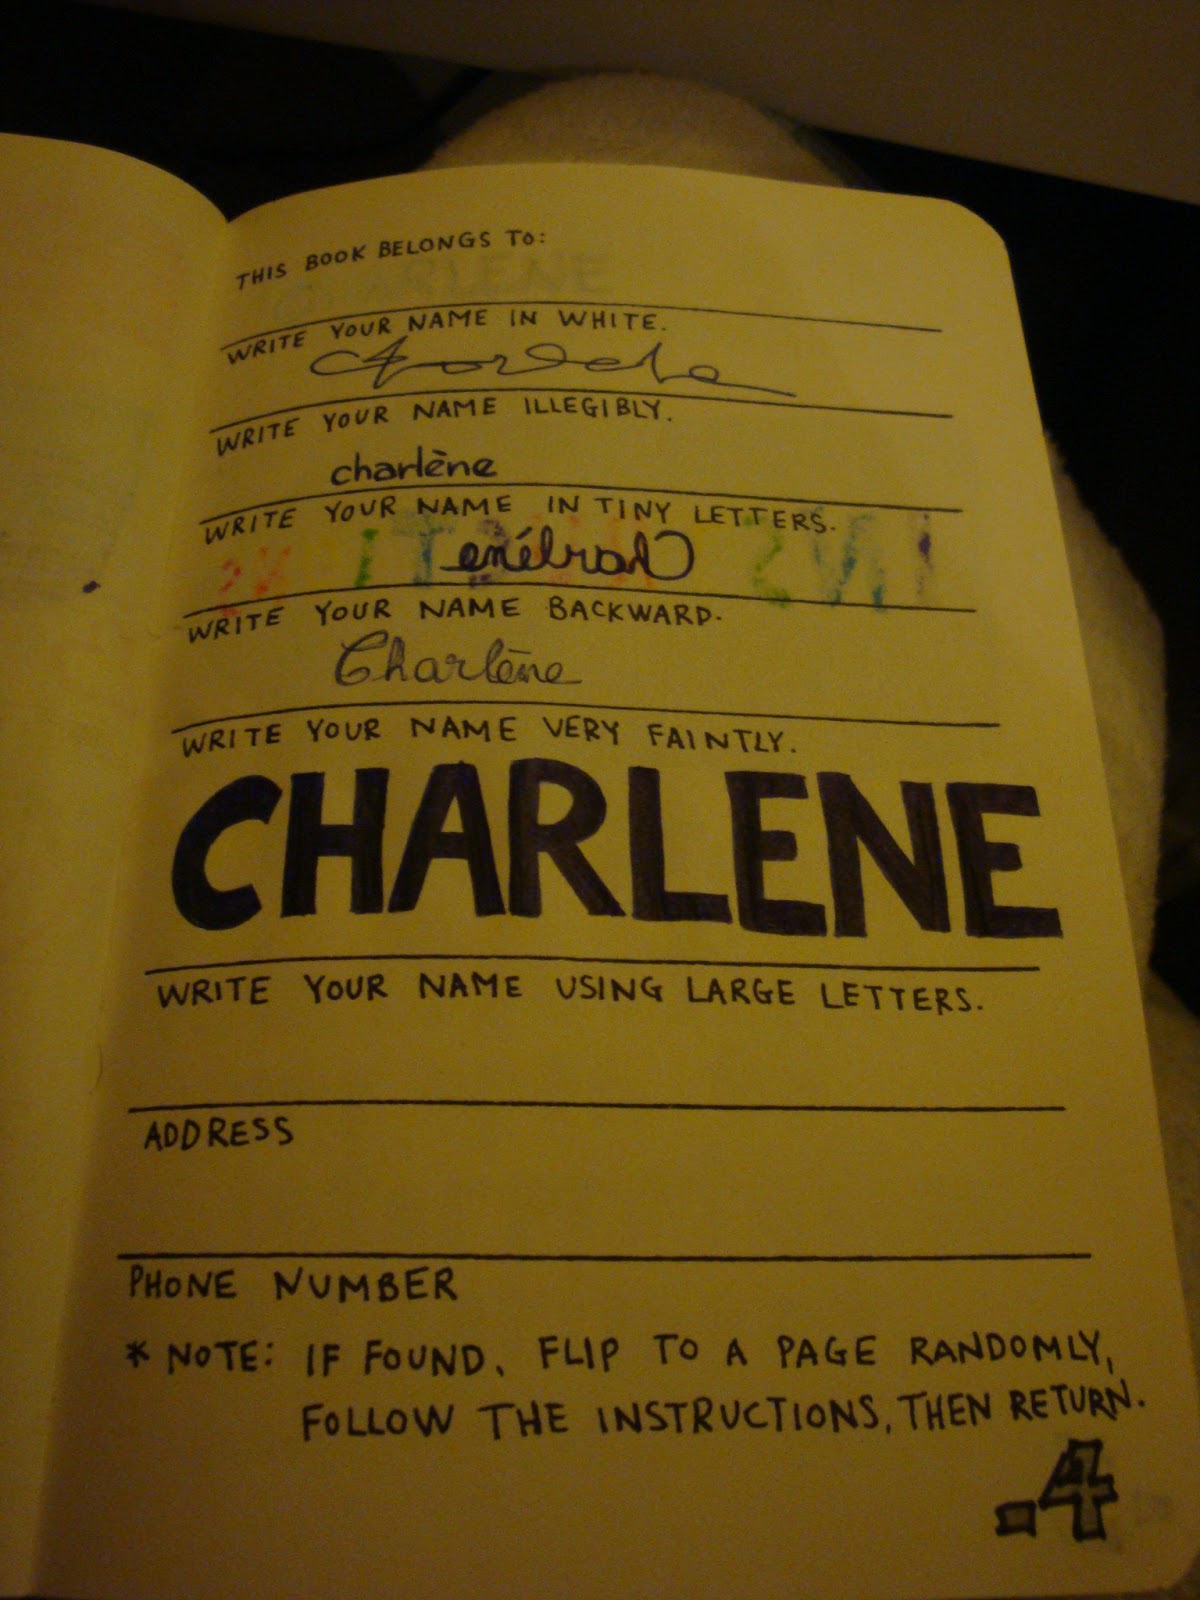 THIS BOOK BELONGS TO:
CHARLENE
WRITE YOUR NAME IN WHITE.
WRITE YOUR NAME ILLEGIBLY.
charlène
WRITE YOUR NAME IN TINY LETTERS.
enélrahC
WRITE YOUR NAME BACKWARD.
Charlène
WRITE YOUR NAME VERY FAINTLY.
CHARLENE
WRITE YOUR NAME USING LARGE LETTERS.
ADDRESS
PHONE NUMBER
* NOTE: IF FOUND, FLIP TO A PAGE RANDOMLY,
FOLLOW THE INSTRUCTIONS, THEN RETURN.
-4